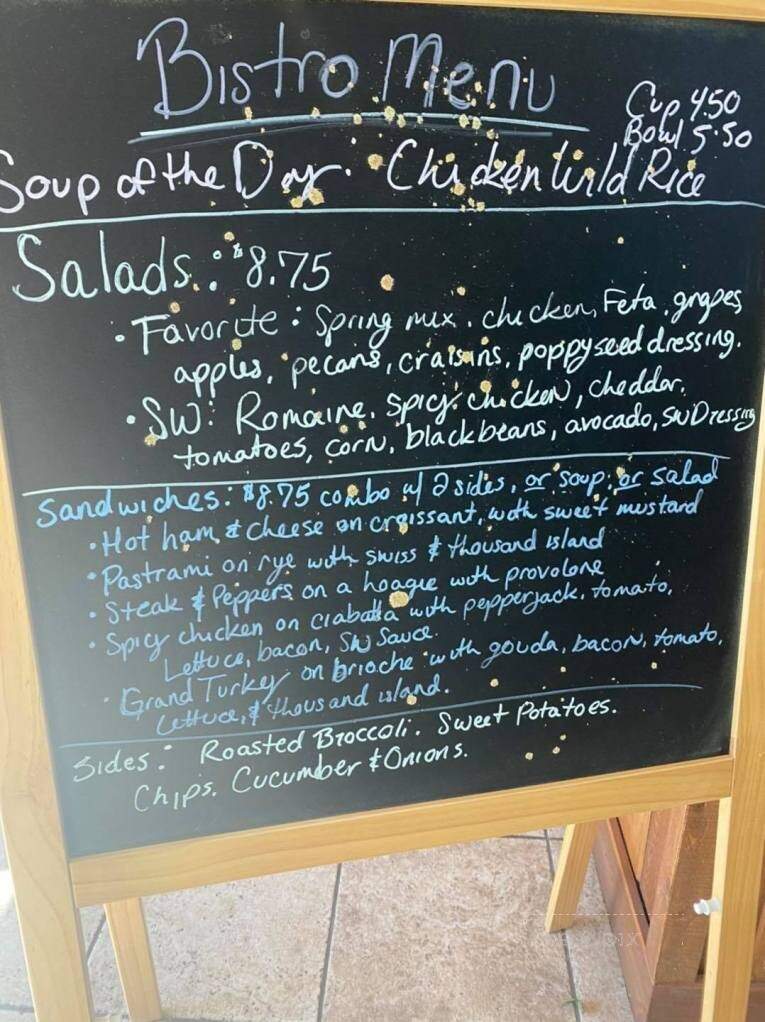 Bistro Menu
Cup 4.50
Bowl 5.50
Soup of the Day. Chicken Wild Rice
Salads: $8.75
• Favorite: Spring mix, chicken, Feta, grapes,
apples, pecans, craisins, poppyseed dressing.
• SW: Romaine, Spicy chicken, cheddar,
tomatoes, corn, blackbeans, avocado, SW Dressing
Sandwiches: $8.75 combo w/ 2 sides, or soup, or salad
• Hot ham & cheese on croissant, with sweet mustard
• Pastrami on rye with swiss & thousand island
• Steak & Peppers on a hoagie with provolone
• Spicy chicken on ciabatta with pepperjack, tomato,
Lettuce, bacon, SW Sauce.
• Grand Turkey on brioche with gouda, bacon, tomato,
Lettuce, & thousand island.
Sides: Roasted Broccoli. Sweet Potatoes.
Chips. Cucumber & Onions.